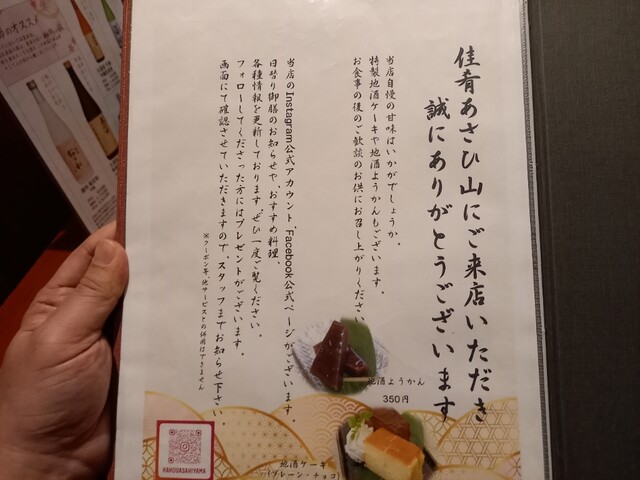 佳肴あさひ山にご来店いただき
誠にありがとうございます
当店自慢の甘味はいかがでしょうか。
特製地酒ケーキや地酒ようかんもございます。
お食事の後のご歓談のお供にお召し上がりください
当店のInstagram公式アカウント、Facebook公式ページがございます。
日替り御膳のお知らせや、おすすめ料理、
各種情報を更新しております ぜひ一度ご覧ください。
フォローしてくださった方にはプレゼントがございます。
画面にて確認させていただきますので、スタッフまでお知らせ下さい。
※クーポン等、他サービスとの併用はできません
地酒ようかん
350円
地酒ケーキ
(プレーン・チョコ)
KAKOUASAHIYAMA
のオススメ